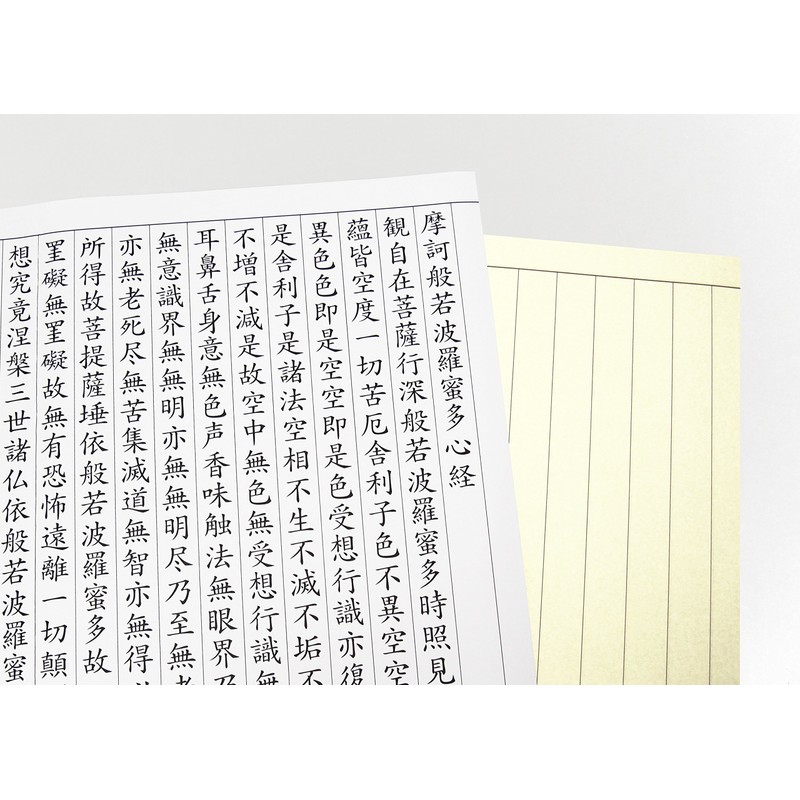 摩訶般若波羅蜜多心経
観自在菩薩行深般若波羅蜜多時照見
蘊皆空度一切苦厄舎利子色不異空空
異色色即是空空即是色受想行識亦復
是舎利子是諸法空相不生不滅不垢不
不増不減是故空中無色無受想行識無
耳鼻舌身意無色声香味触法無眼界乃
無意識界無無明亦無無明尽乃至無老
亦無老死尽無苦集滅道無智亦無得
所得故菩提薩埵依般若波羅蜜多故
罣礙無罣礙故無有恐怖遠離一切顛
想究竟涅槃三世諸仏依般若波羅蜜